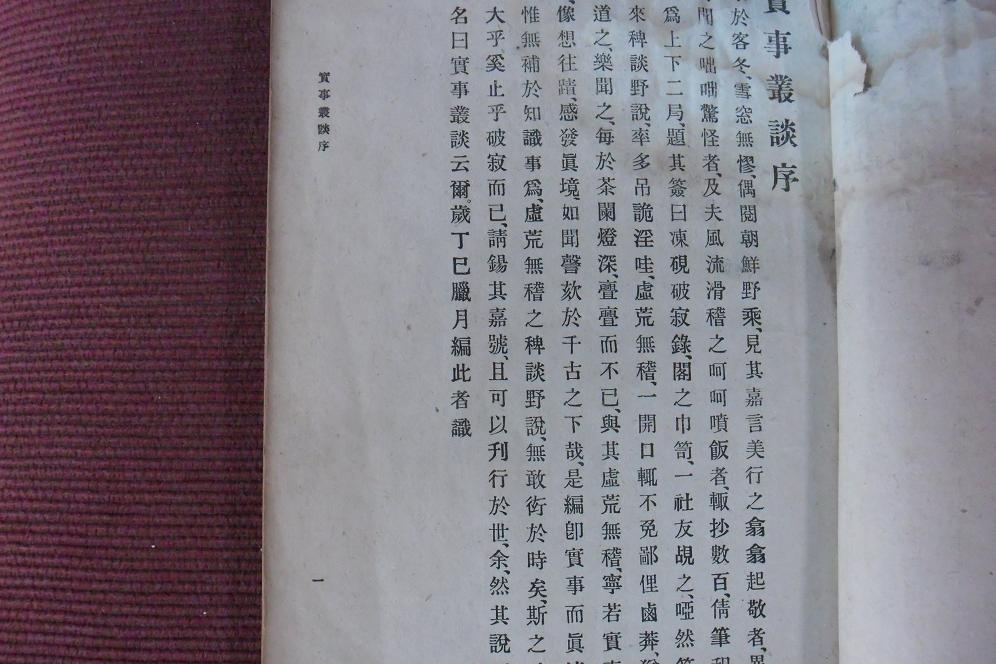 事叢談序
於客冬、雪窓無憀、偶閱朝鮮野乘、見其嘉言美行之翕翕起敬者、異
聞之咄咄驚怪者、及夫風流滑稽之呵呵噴飯者、輙抄數百、倩筆
爲上下二局、題其簽曰凍硯破寂錄、閣之巾笥、一社友覘之、啞然笑
來稗談野說、率多吊詭淫哇、虛荒無稽、一開口輒不免鄙俚鹵莽、
道之、樂聞之、每於茶闌燈深、亹亹而不已、與其虛荒無稽、寧若實事
像想往蹟、感發眞境、如聞謦欬於千古之下哉、是編卽實事而眞
惟無補於知識事爲、虛荒無稽之稗談野說、無敢衒於時矣、斯之
大乎奚止乎破寂而已、請鍚其嘉號、且可以刊行於世、余、然其說
名曰實事叢談云爾。歲丁巳臘月編此者識
實事叢談序
一